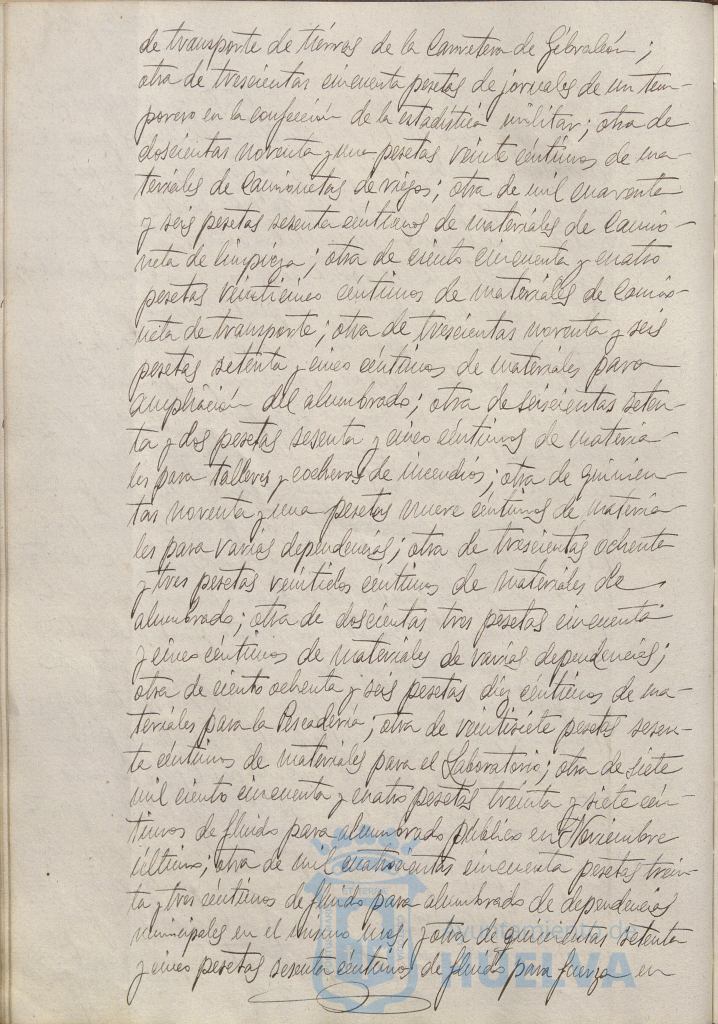 de transporte de tierras de la Carretera de Gibraleón;
otra de trescientas cincuenta pesetas de jornales de un tem-
porero en la confección de la estadística militar; otra de
doscientas noventa y una pesetas veinte céntimos de ma-
teriales de camionetas de riegos; otra de mil cuarenta
y seis pesetas sesenta céntimos de materiales de camio-
neta de limpieza; otra de ciento cincuenta y cuatro
pesetas veinticinco céntimos de materiales de camio-
neta de transporte; otra de trescientas noventa y seis
pesetas setenta y cinco céntimos de materiales para
ampliación del alumbrado; otra de seiscientas seten-
ta y dos pesetas sesenta y cinco céntimos de materia-
les para talleres y cocheras de incendios; otra de quinien-
tas noventa y una pesetas nueve céntimos de materia-
les para varias dependencias; otra de trescientas ochenta
y tres pesetas veintidos céntimos de materiales de
alumbrado; otra de doscientas tres pesetas cincuenta
y cinco céntimos de materiales de varias dependencias;
otra de ciento ochenta y seis pesetas diez céntimos de ma-
teriales para la Pescadería; otra de veintisiete pesetas sesen-
ta céntimos de materiales para el Laboratorio; otra de siete
mil ciento cincuenta y cuatro pesetas treinta y siete cén-
timos de fluido para alumbrado público en Noviembre
último; otra de mil cuatrocientas cincuenta pesetas trein-
ta y tres céntimos de fluido para alumbrado de dependencias
municipales en el mismo mes, y otra de quinientas setenta
y cinco pesetas sesenta céntimos de fluido para fuerza en
ayuntamiento de
HUELVA